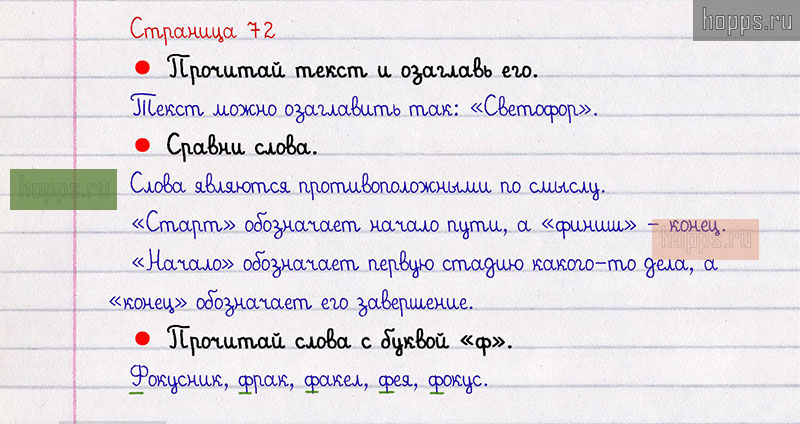 hopps.ru
Страница 72
Прочитай текст и озаглавь его.
Текст можно озаглавить так: «Светофор».
Сравни слова.
hopps.ru
Слова являются противоположными по смыслу.
«Старт» обозначает начало пути, а «финиш» – конец.
hopps.ru
«Начало» обозначает первую стадию какого-то дела, а
«конец» обозначает его завершение.
Прочитай слова с буквой «ф».
Фокусник, фрак, факел, фея, фокус.